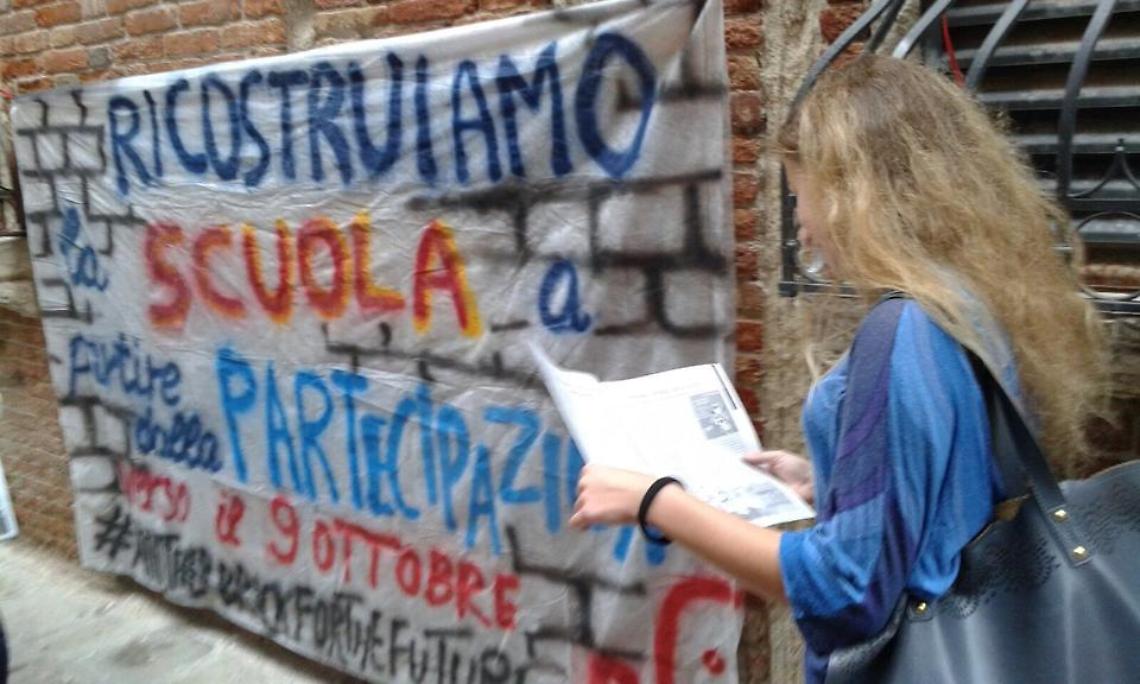 RICOSTRUIAMO
la SCUOLA a
partire
dalla PARTECIPAZION
verso il 9 OTTOBRE
#ANOTHERBRICKFORTHEFUTUR